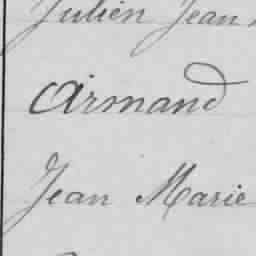 Julien Jean
Armand
Jean Marie